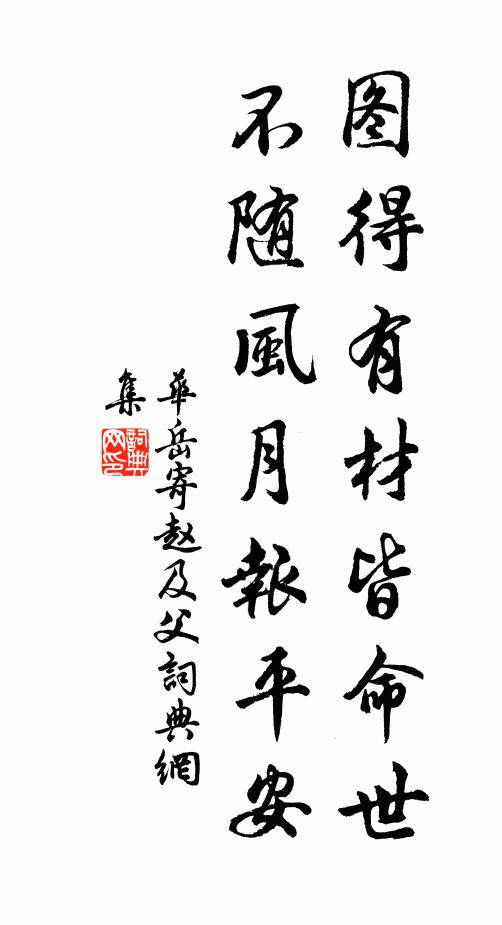 图得有材皆命世
不随風月報平安
華岳寄赵及父詞典網
集
詞典
网印